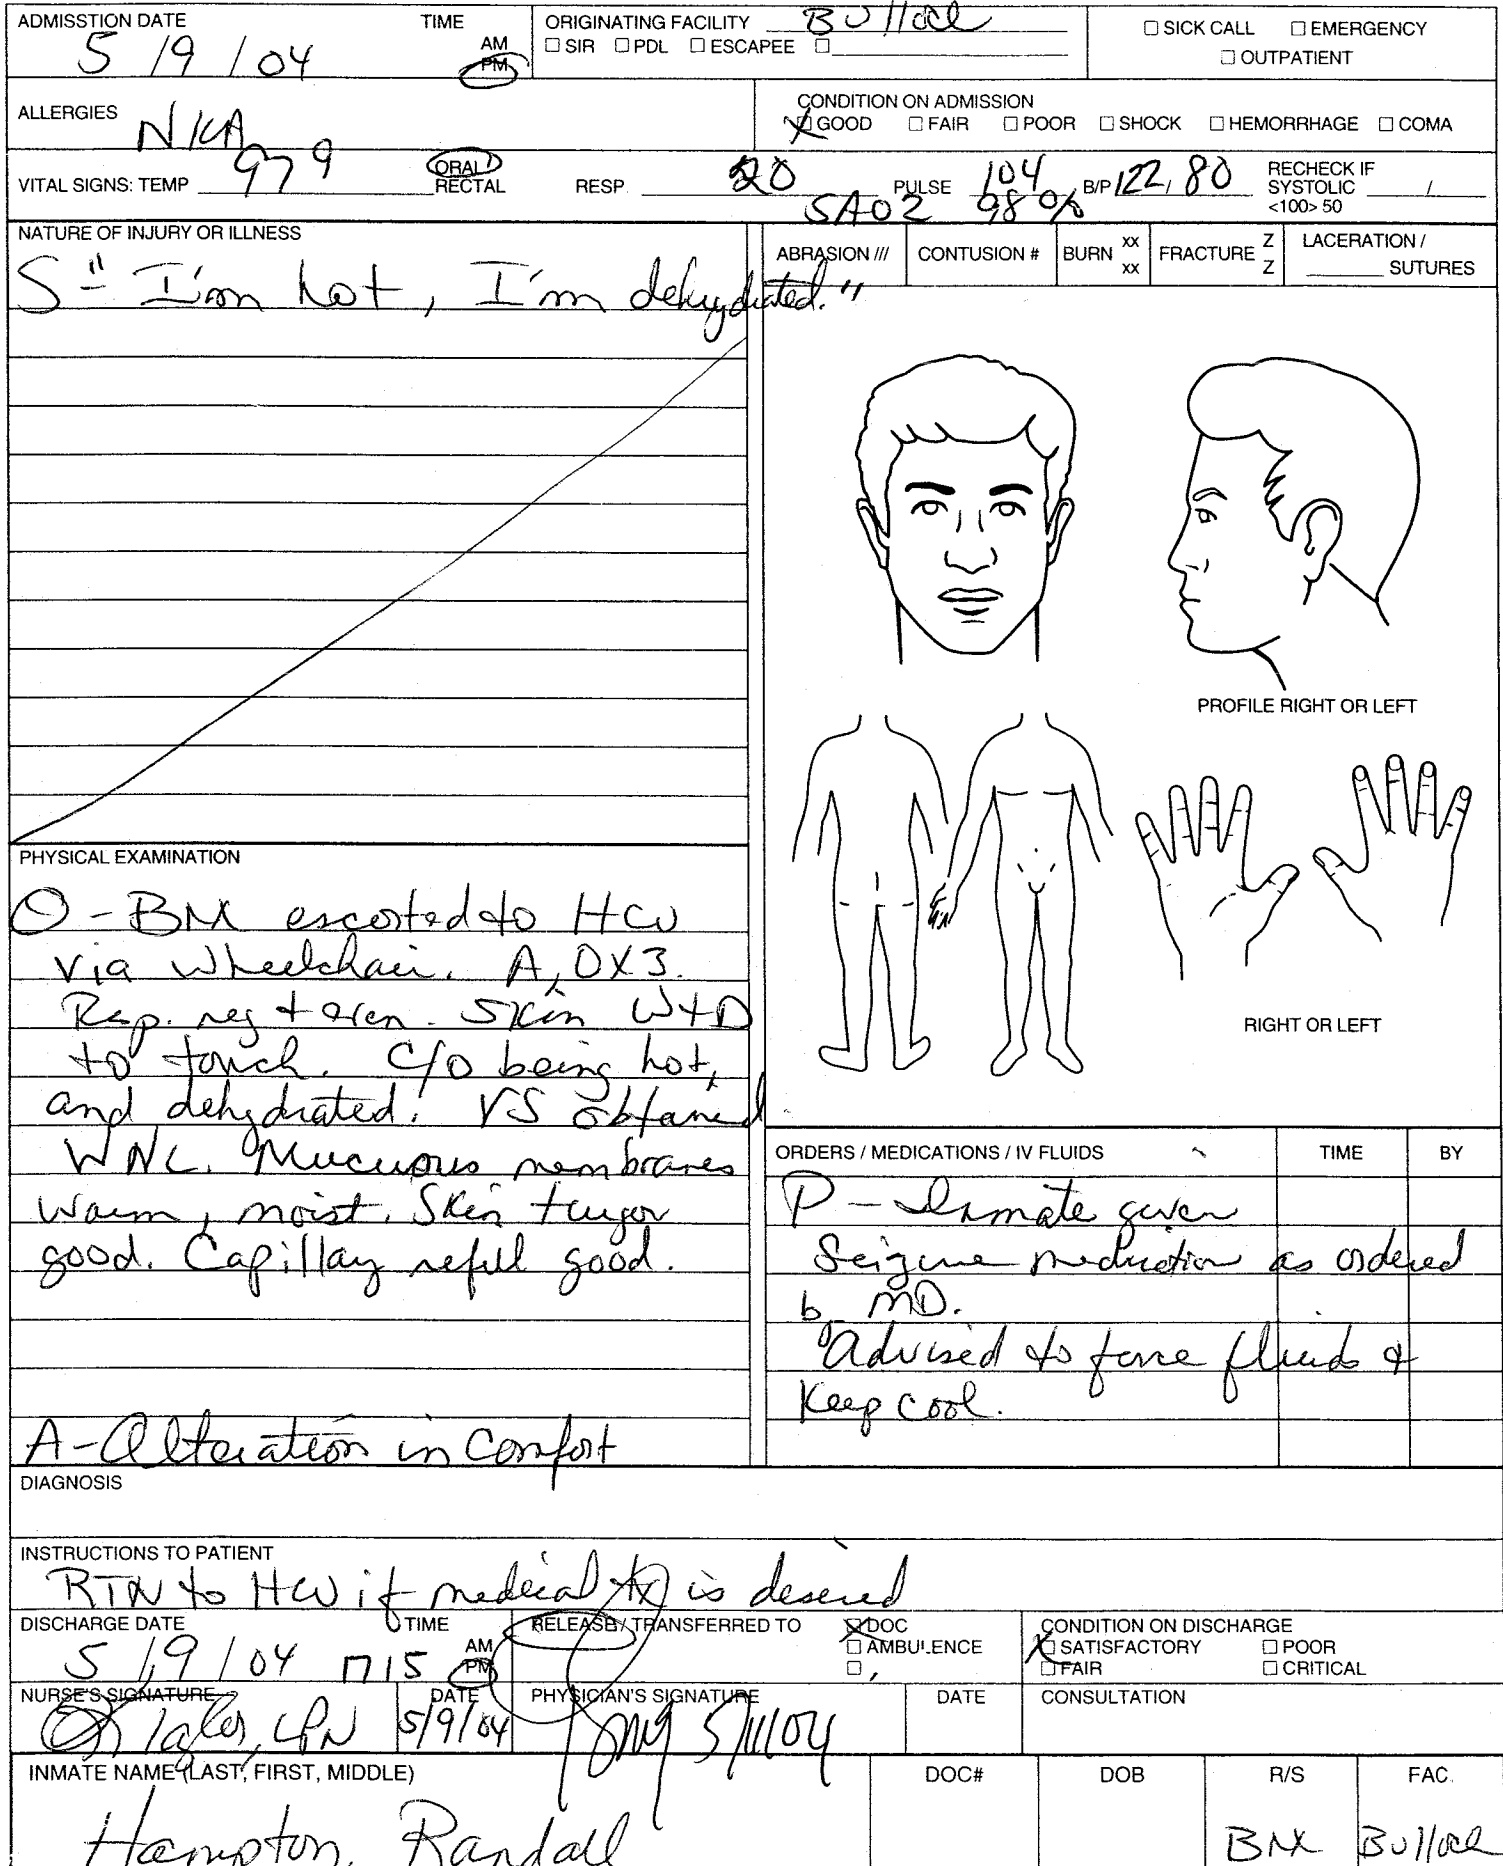 ADMISSTION DATE TIME ORIGINATING FACILITY Bullock
5 / 9 / 04 AM PM □ SIR □ PDL □ ESCAPEE □ □ SICK CALL □ EMERGENCY
□ OUTPATIENT
ALLERGIES NKA CONDITION ON ADMISSION
□ GOOD □ FAIR □ POOR □ SHOCK □ HEMORRHAGE □ COMA
VITAL SIGNS: TEMP 979 ORAL RECTAL RESP. 20 PULSE 104 B/P 122 / 80 RECHECK IF SYSTOLIC / <100> 50
SAO2 98%
NATURE OF INJURY OR ILLNESS ABRASION /// CONTUSION # BURN xx xx FRACTURE Z Z LACERATION / SUTURES
S - "I'm hot, I'm dehydrated."
PROFILE RIGHT OR LEFT
RIGHT OR LEFT
PHYSICAL EXAMINATION
O - BM escorted to HCU
via wheelchair. A, OX3.
Resp. reg + even. Skin W+D
to touch. C/O being hot,
and dehydrated. VS obtained
WNL. Mucupus membranes
warm, moist. Skin turgor
good. Capillay refill good.
A - Alteration in Comfort
ORDERS / MEDICATIONS / IV FLUIDS TIME BY
P - Inmate given
Seizure medication as ordered
by MD.
Advised to force fluids &
Keep cool.
DIAGNOSIS
INSTRUCTIONS TO PATIENT
RTN to HCU if medical tx is desired
DISCHARGE DATE TIME RELEASE / TRANSFERRED TO □ DOC CONDITION ON DISCHARGE
5 / 9 / 04 1715 AM PM □ AMBULENCE □ SATISFACTORY □ POOR
□ □ FAIR □ CRITICAL
NURSE'S SIGNATURE DATE PHYSICIAN'S SIGNATURE DATE CONSULTATION
LPN 5/9/04 5/11/04
INMATE NAME (LAST, FIRST, MIDDLE) DOC# DOB R/S FAC.
Hampton, Randall BM Bullock